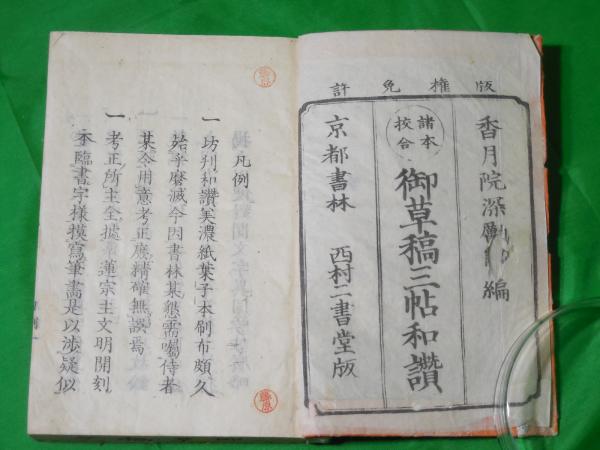 版權免許
香月院深勵編
諸本校合
御草稿三帖和讚
京都書林 西村二書堂版
凡例
一 坊刋和讚美濃紙葉子本刷布頗久
殆乎磨滅今因書林某懇需囑侍者
某令用意考正應精確無誤焉
一 考正所主全據蓮宗主文明開刻
本臨書字樣摸寫筆畫是以涉疑似